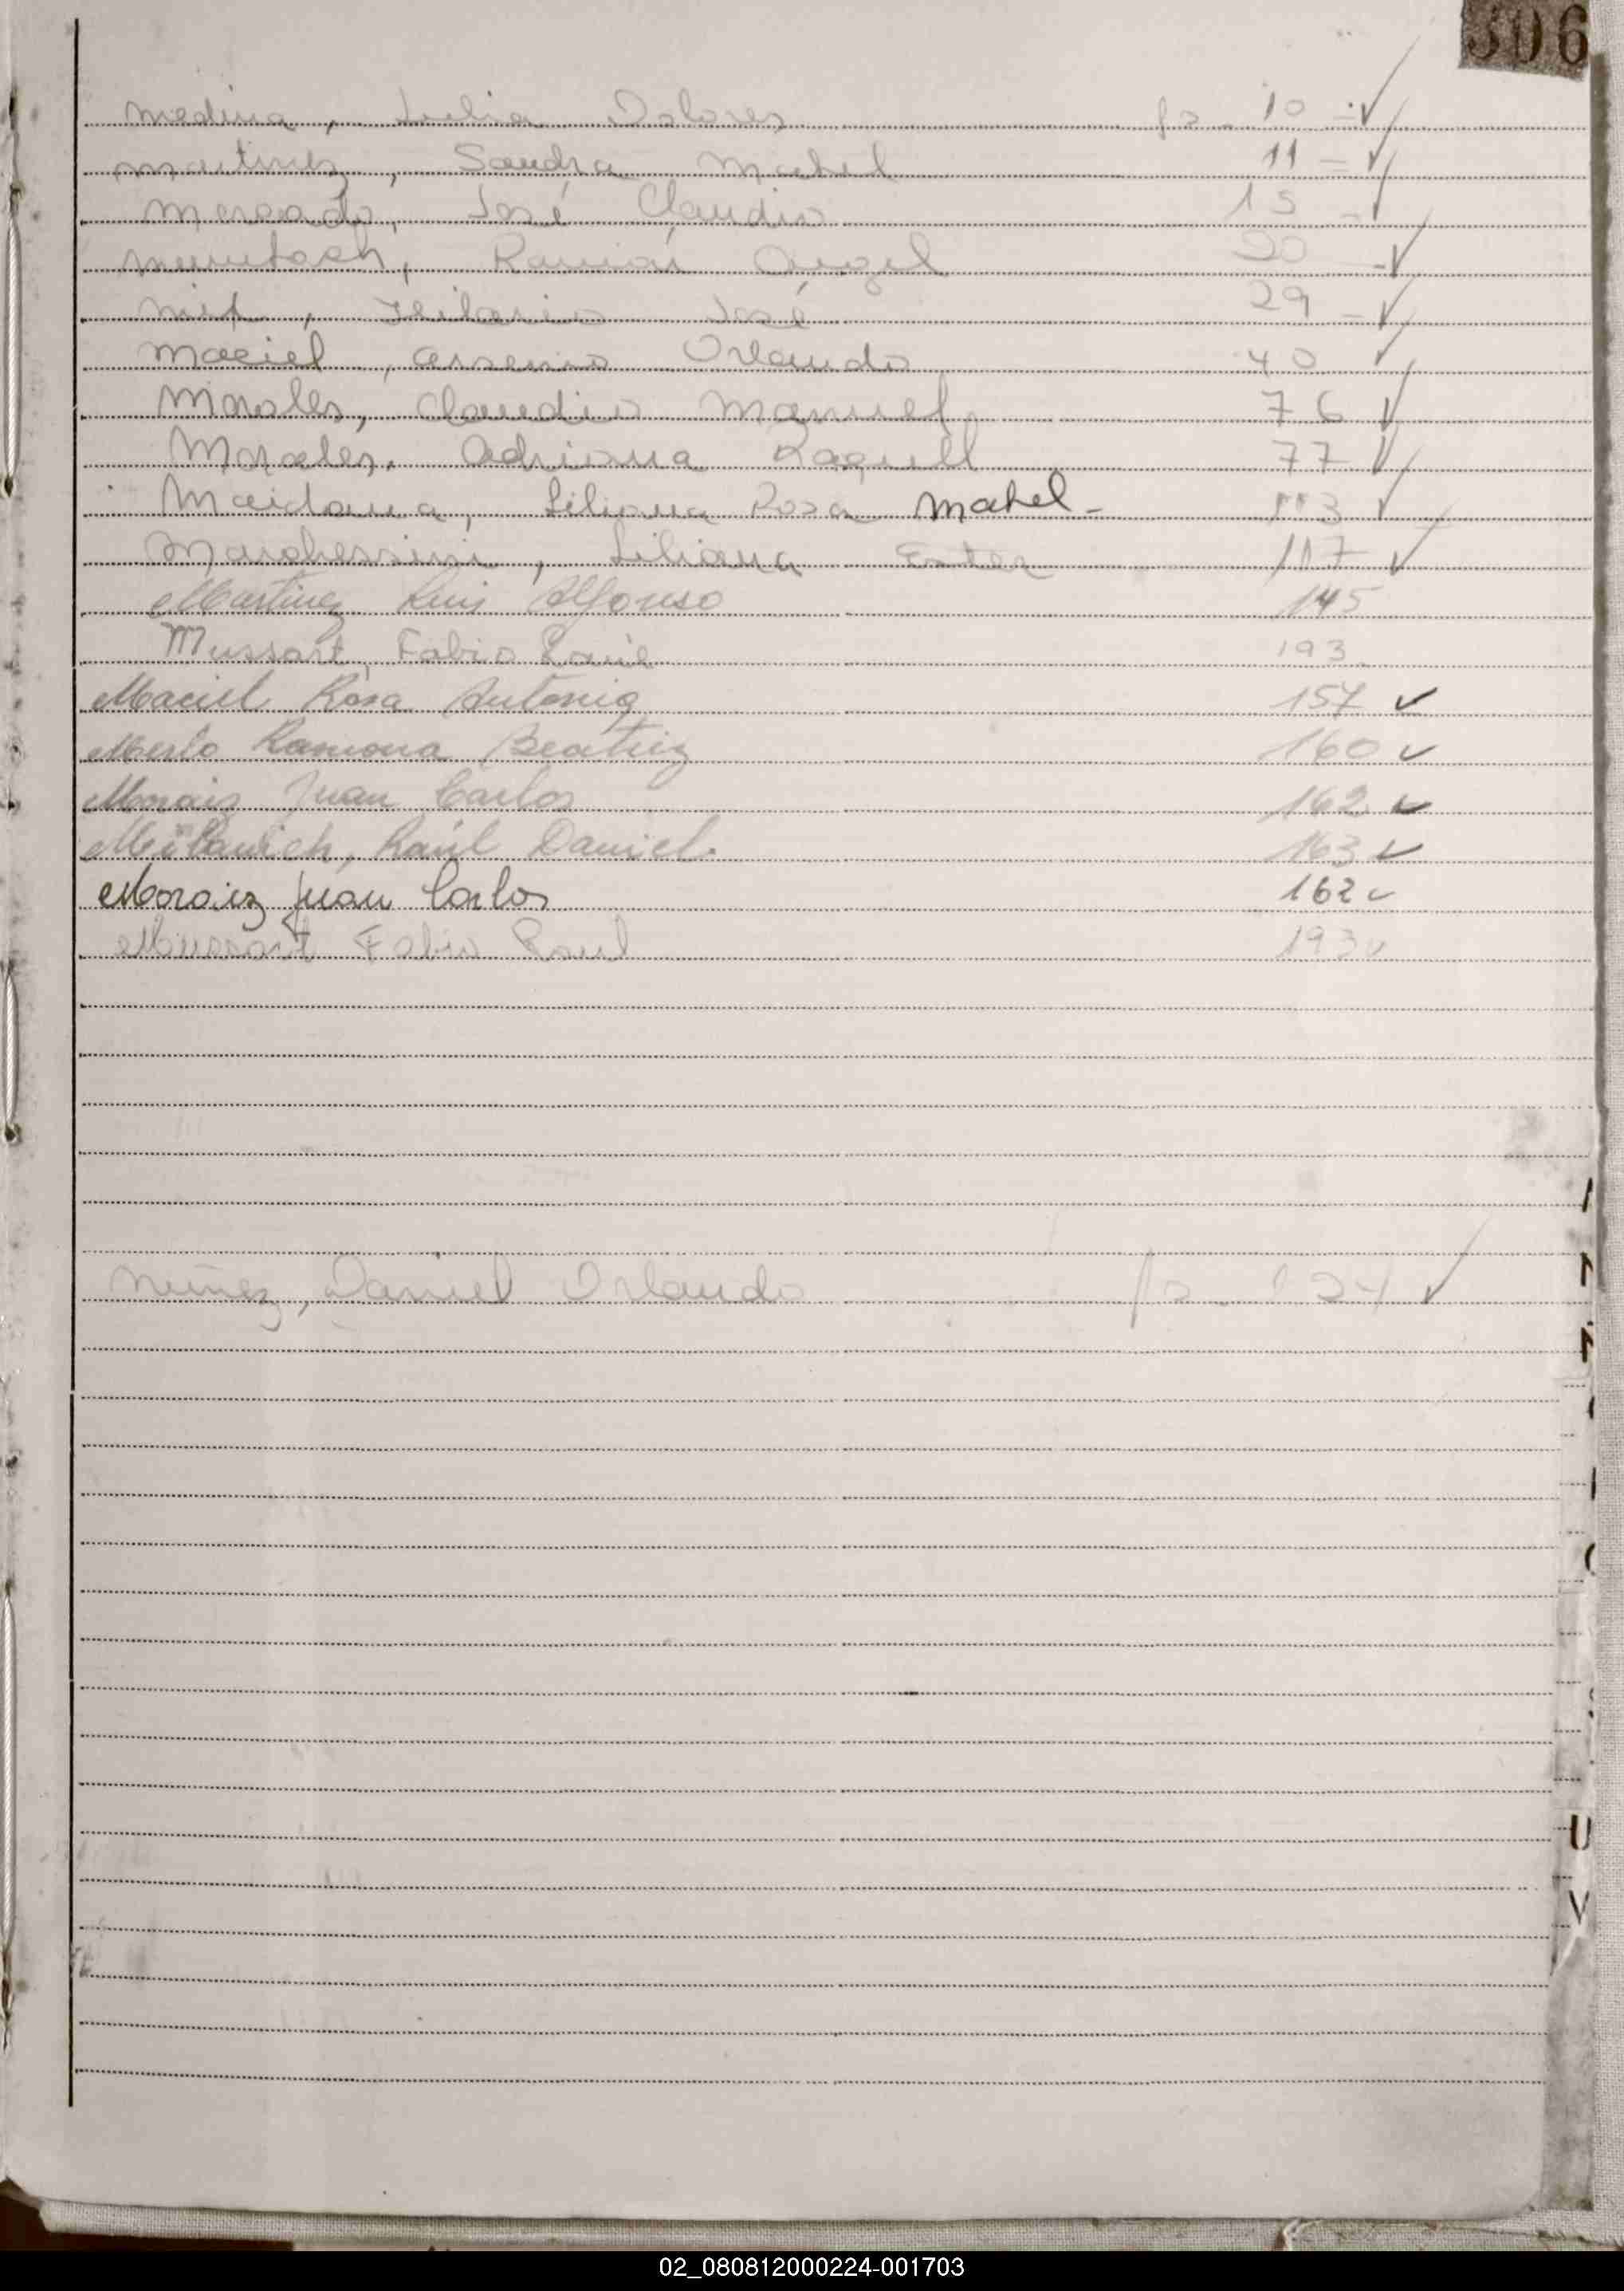 306
Medina, Julia Dolores fs - 10 - ✓
Martinez, Sandra Mabel 11 - ✓
Mercado, José Claudio 15 - ✓
Ramón Angel 20 - ✓
José 29 - ✓
Maciel, Arsenio Orlando 40 ✓
Morales, Claudio Manuel 76 ✓
Morales, Adriana Raquell 77 ✓
Maidana, Liliana Rosa Mabel - 113 ✓
Marchessini, Liliana Ester 117 ✓
Martinez Luis Alfonso 145
Mussart, Fabio Raúl 193
Maciel Rosa Antonia 157 ✓
Merlo Ramona Beatriz 160 ✓
Morais Juan Carlos 162 ✓
Milanich, Raúl Daniel. 163 ✓
Moraiz Juan Carlos 162 ✓
Mussart Fabio Raul 193 ✓
Nuñez, Daniel Orlando fs - 124 ✓
U
V
02_080812000224-001703